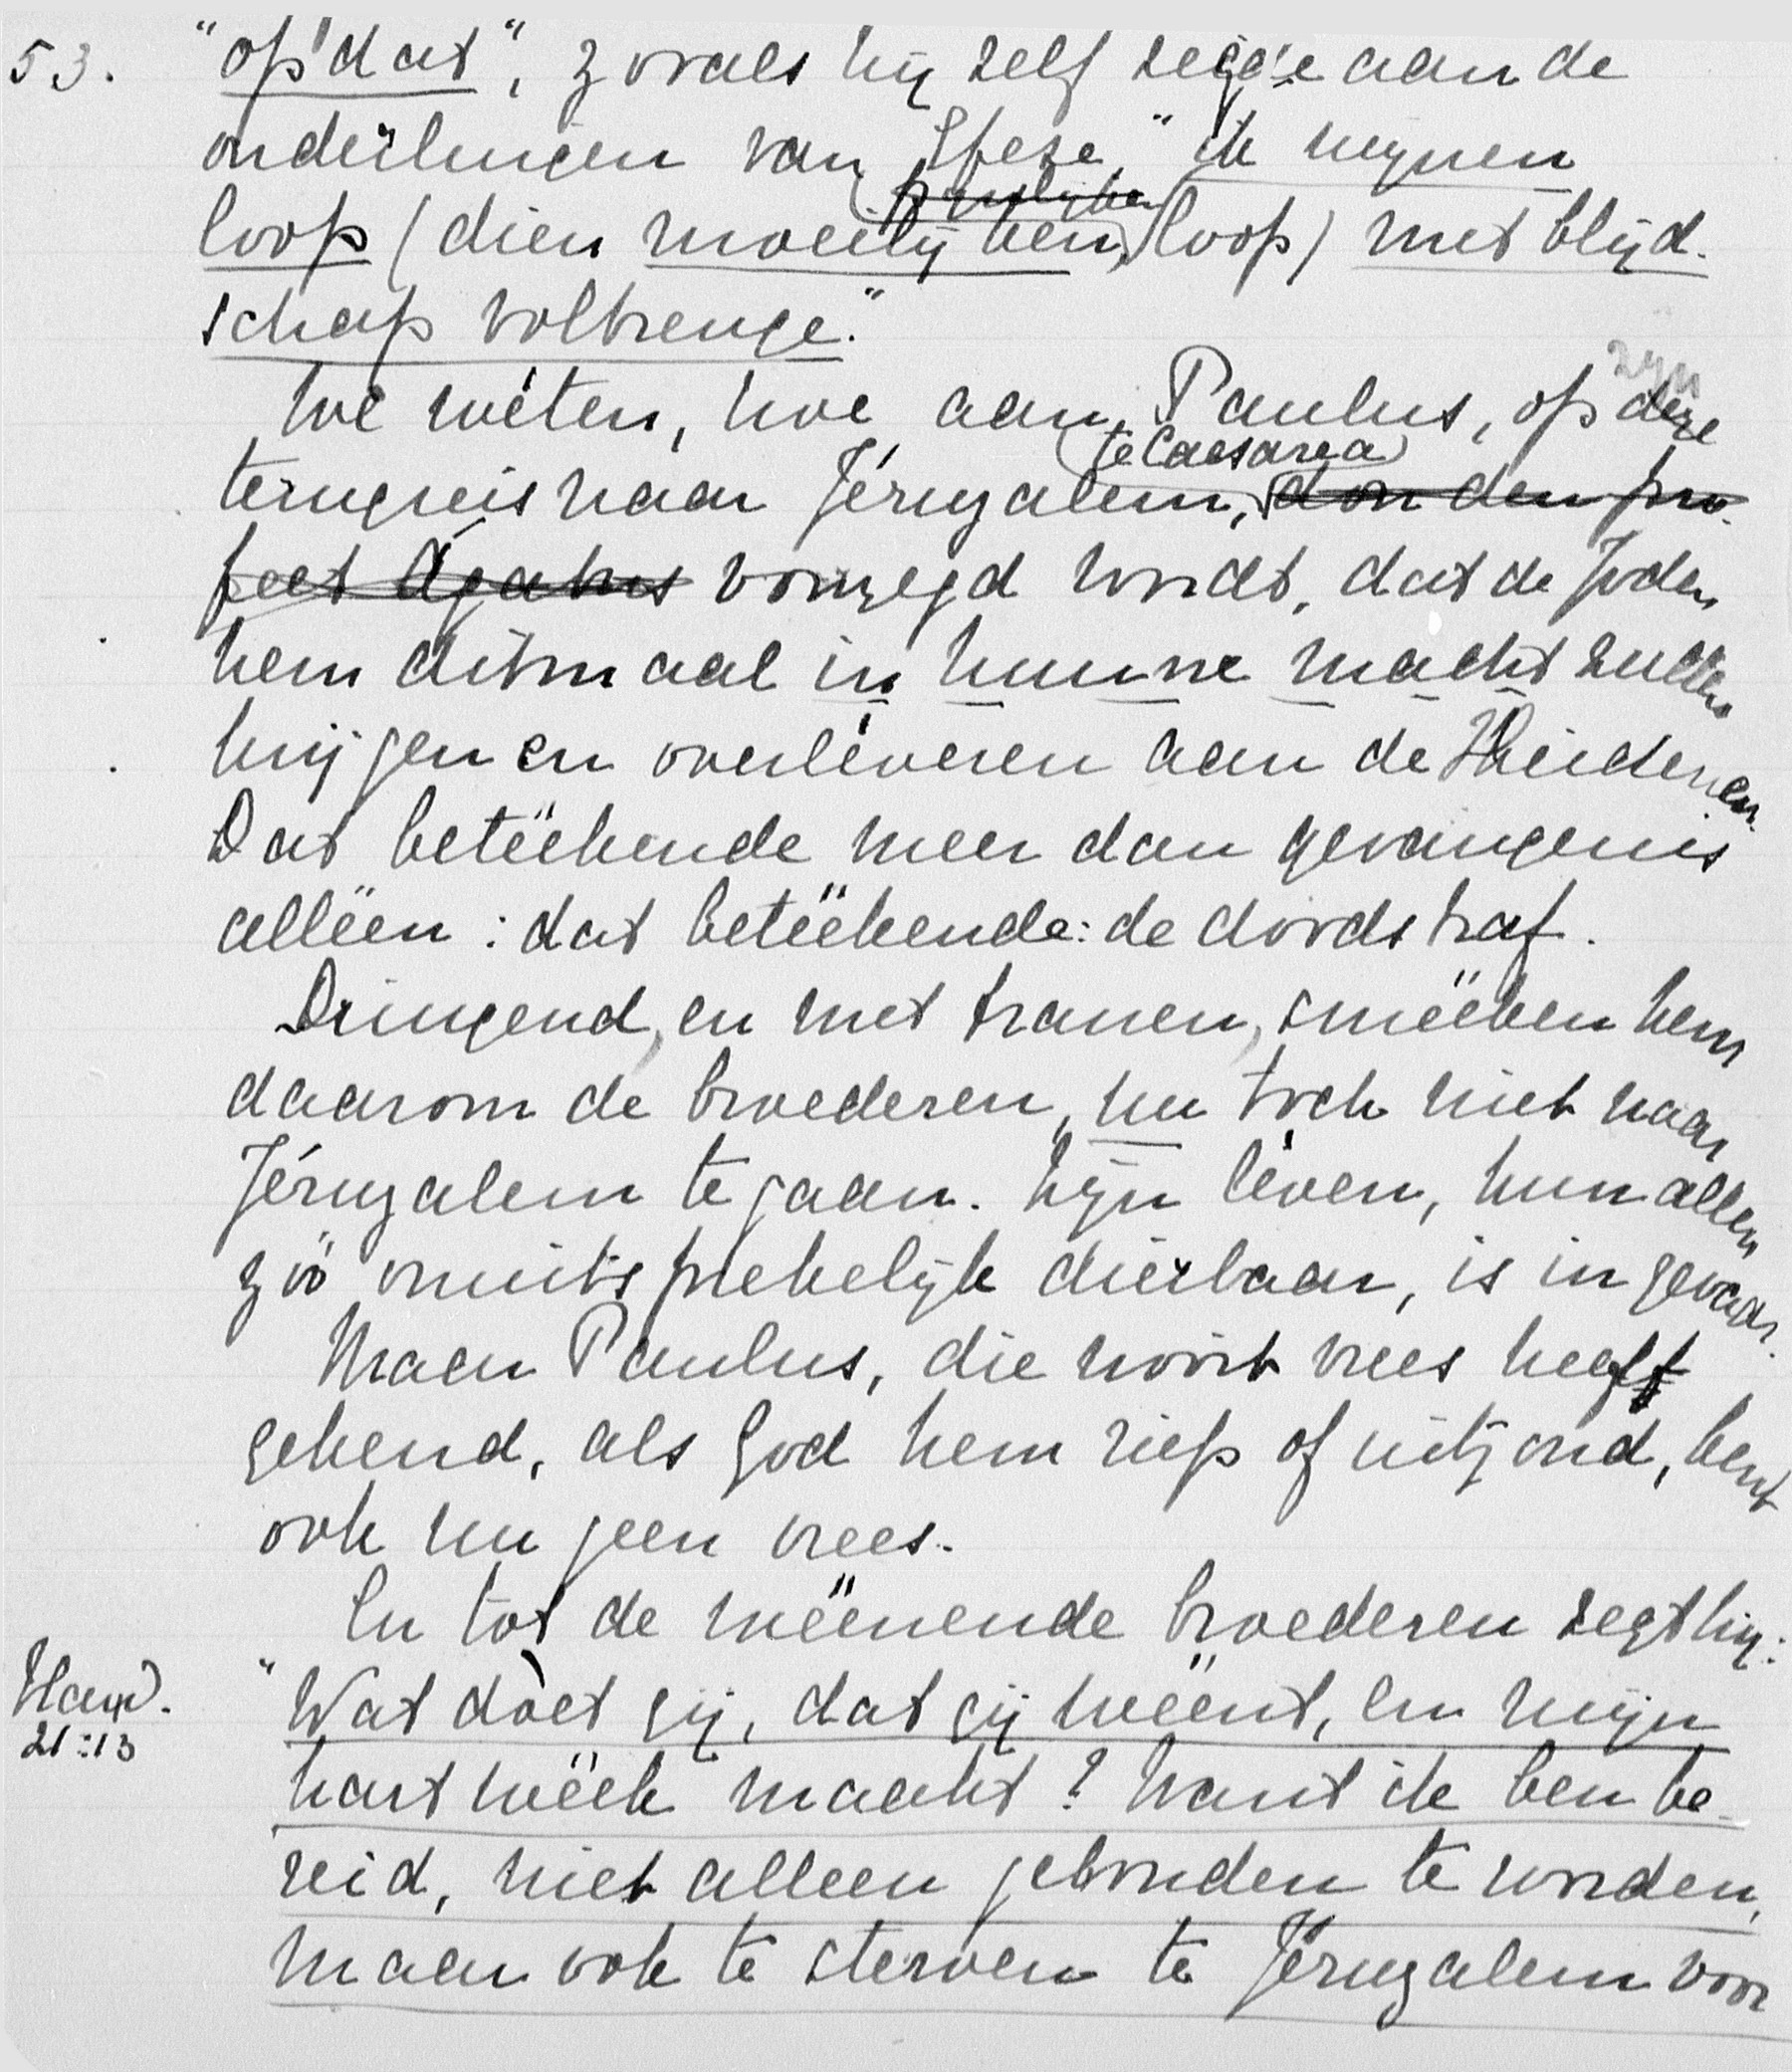 53. "opdat", zooals hij zelf zeide aan de
ouderlingen van Efeze, "ik mijnen
loop (dien moeilijken, loop) met blijd-
schap volbrenge."
We wéten, hoe aan Paulus, op zijn
te Caesarea
terugreis naar Jéruzalem, door den pro-
feet Agabus voorzegd wordt, dat de Joden
hem ditmaal in hunne macht zullen
krijgen en overléveren aan de Heidenen.
Dat betëekende meer dan gevangenis
allëen: dat betëekende: de doodstraf.
Dringend, en met tranen, smëeken hem
daarom de broederen, nu toch niet naar
Jéruzalem te gaan. Zijn léven, hun allen
zóó onuitsprekelijk dierbaar, is in gevaar.
Maar Paulus, die nooit vrees heeft
gekend, als God hem riep of uitzond, kent
ook nu geen vrees.
En tot de wëenende broederen zegt hij:
Hand. "Wat dòet gij, dat gij wëent, en mijn
21:13
hart wëek maakt? Want ik ben be-
reid, niet alleen gebonden te worden,
maar ook te sterven te Jéruzalem voor